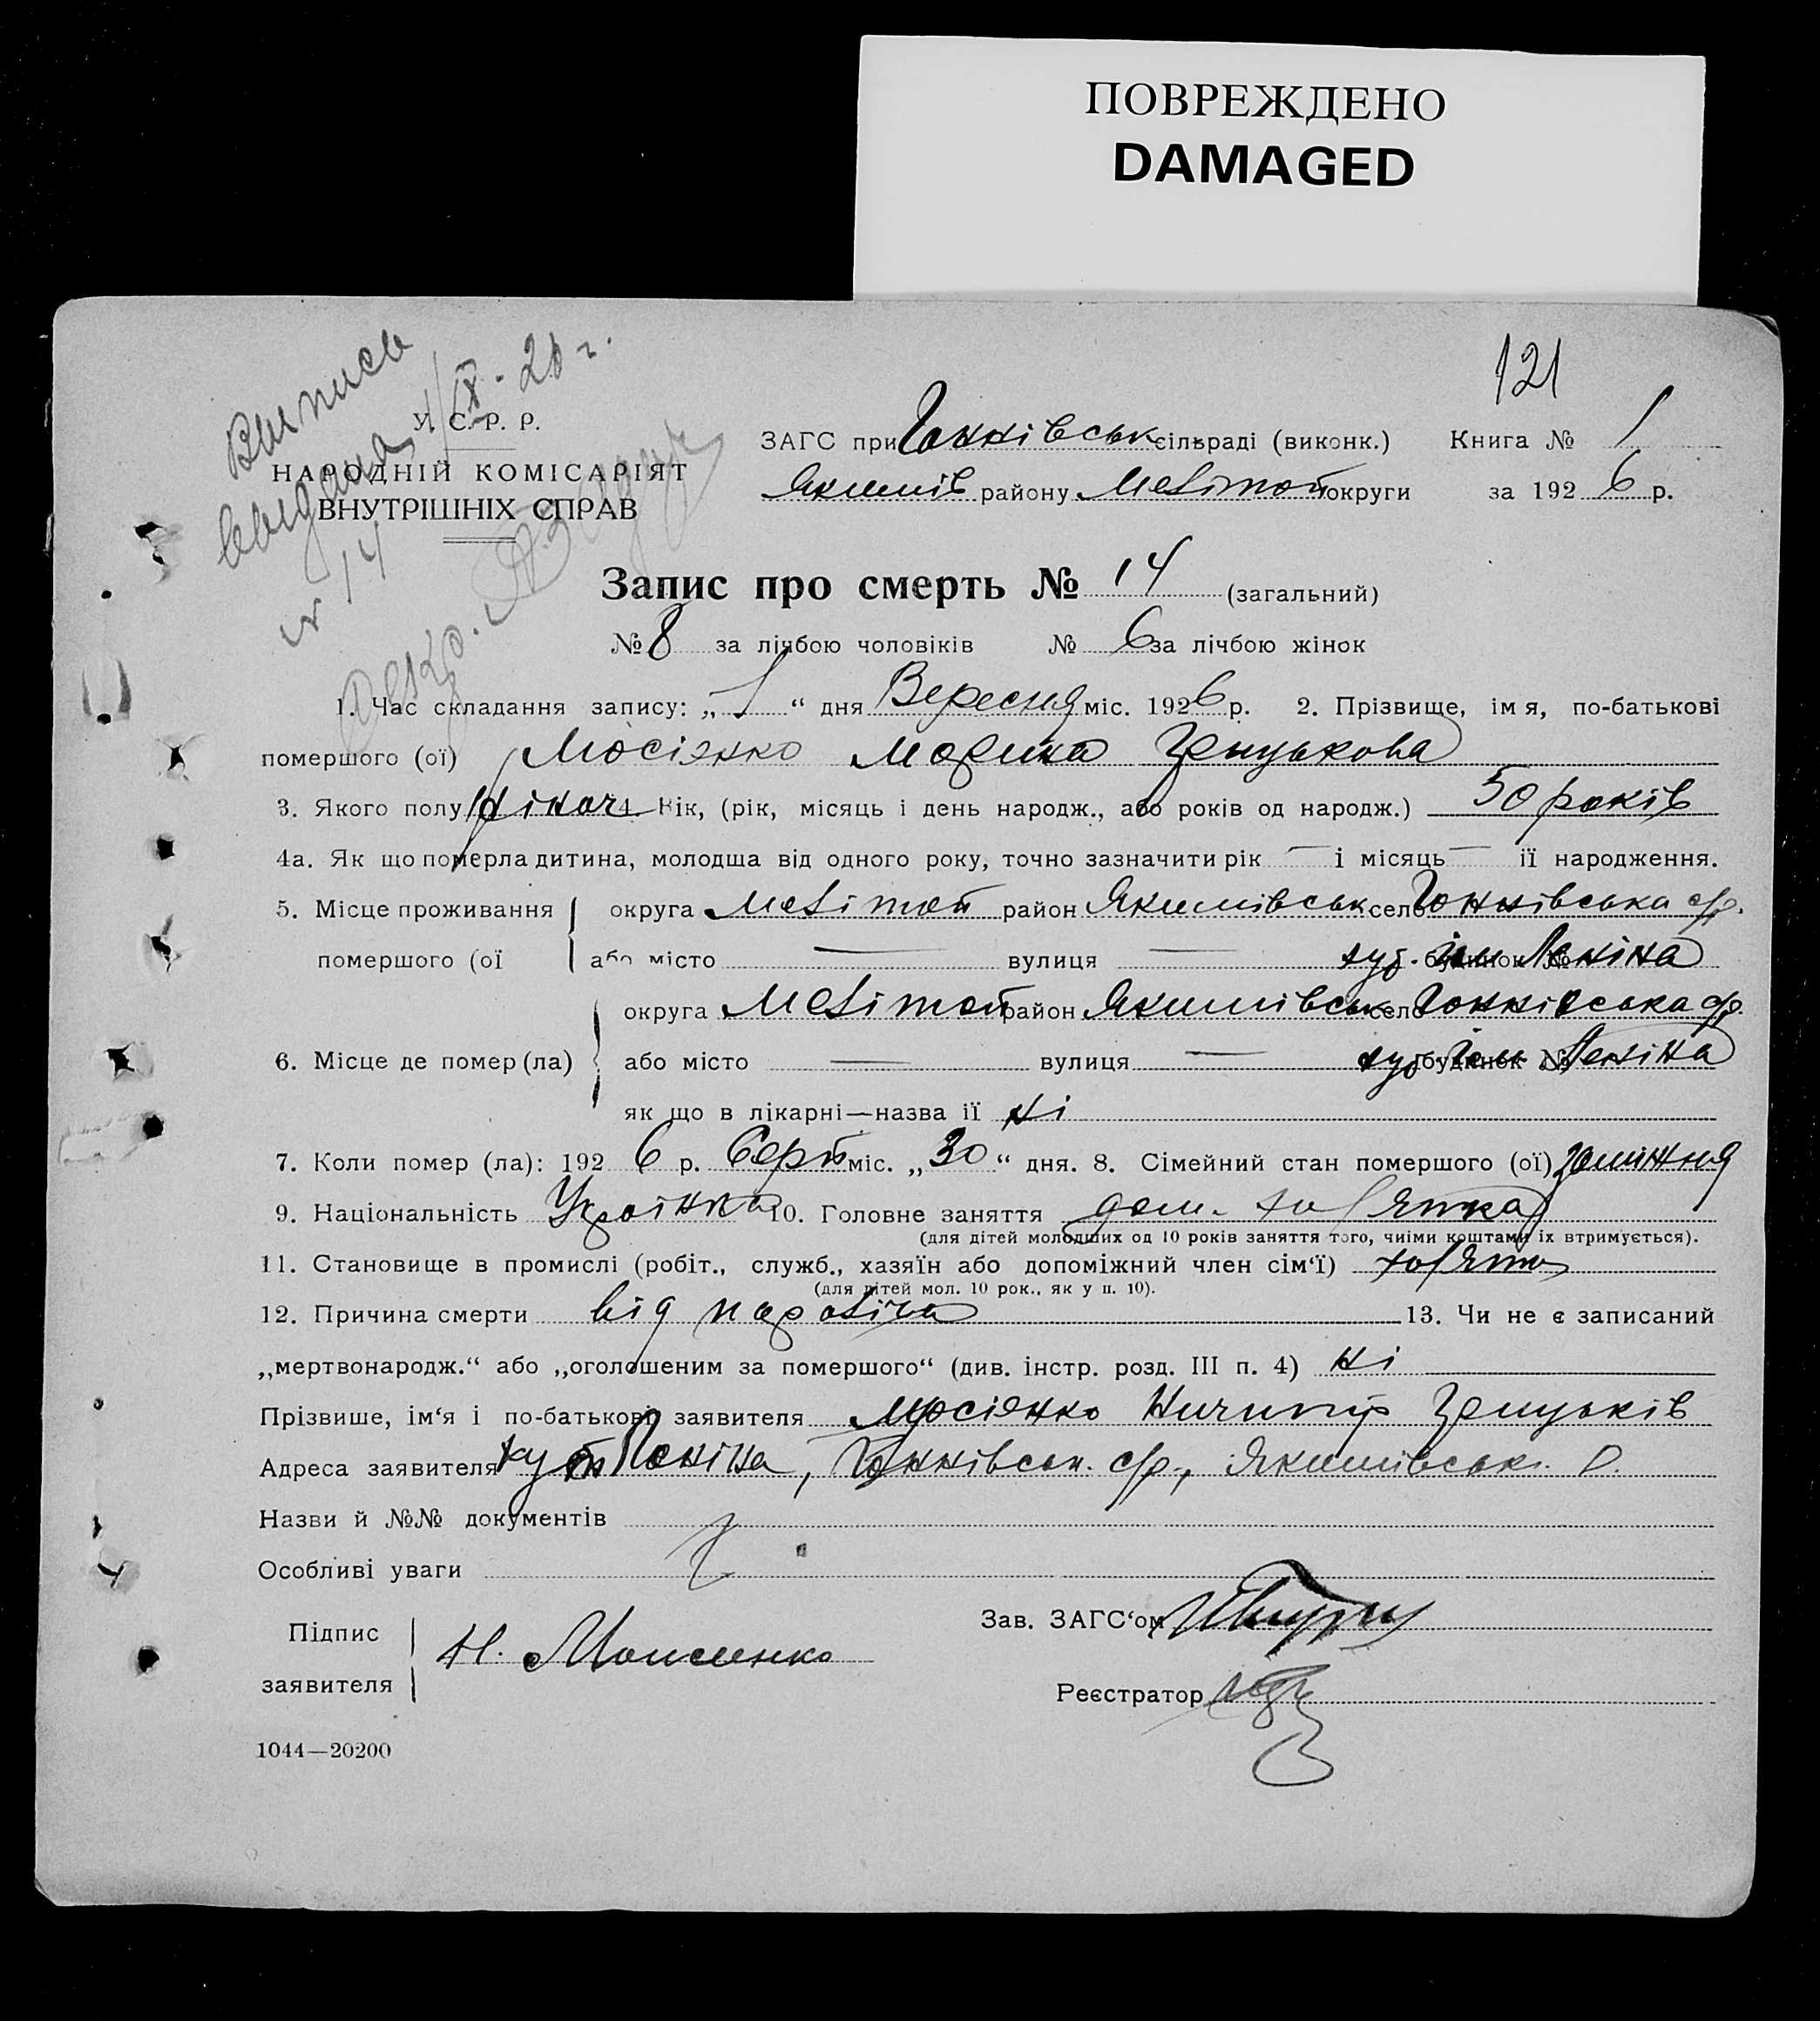 ПОВРЕЖДЕНО
DAMAGED
121
Выпись
выдана 1/IX-26 г.
№ 14
У. С. Р. Р.
НАРОДНІЙ КОМІСАРІЯТ
ВНУТРІШНІХ СПРАВ
ЗАГС при Гоннівськ сільраді (виконк.) Книга № 1
Якимів району Мелітоп округи за 1926 р.
Запис про смерть № 14 (загальний)
№ 8 за лічбою чоловіків № 6 за лічбою жінок
1. Час складання запису: „1“ дня Вересня міс. 1926 р. 2. Прізвище, імя, по-батькові
помершого (ої) Мосіянко Марина Грицькова
3. Якого полу жіноч 4. Вік, (рік, місяць і день народж., або років од народж.) 50 років
4а. Як що померла дитина, молодша від одного року, точно зазначити рік — і місяць — її народження.
5. Місце проживання округа Мелітоп район Якимівськ село Гоннівська с/р.
помершого (ої або місто — вулиця — будинок № хут. ім Леніна
округа Мелітоп район Якимівськ село Гоннівська с/р.
6. Місце де помер (ла) або місто — вулиця — будинок № хут ім Леніна
як що в лікарні—назва її ні
7. Коли помер (ла): 1926 р. Серп міс. „30“ дня. 8. Сімейний стан помершого (ої) заміжня
9. Національність Українка 10. Головне заняття дом. хаз
(для дітей молодших од 10 років заняття того, чиїми коштами їх втримується).
11. Становище в промислі (робіт., служб., хазяїн або допоміжний член сім‘ї)
(для дітей мол. 10 рок., як у п. 10).
12. Причина смерти від параліча 13. Чи не є записаний
„мертвонародж.“ або „оголошеним за помершого“ (див. інстр. розд. III п. 4) ні
Прізвише, ім‘я і по-батькові заявителя Мосіянко Ничипір Грицьків
Адреса заявителя хут ім Леніна, Гоннівськ. с/р., Якимівськ. р.
Назви й №№ документів
Особливі уваги
Підпис
заявителя
Н. Моисеенко
Зав. ЗАГС‘ом
Реєстратор
1044—20200